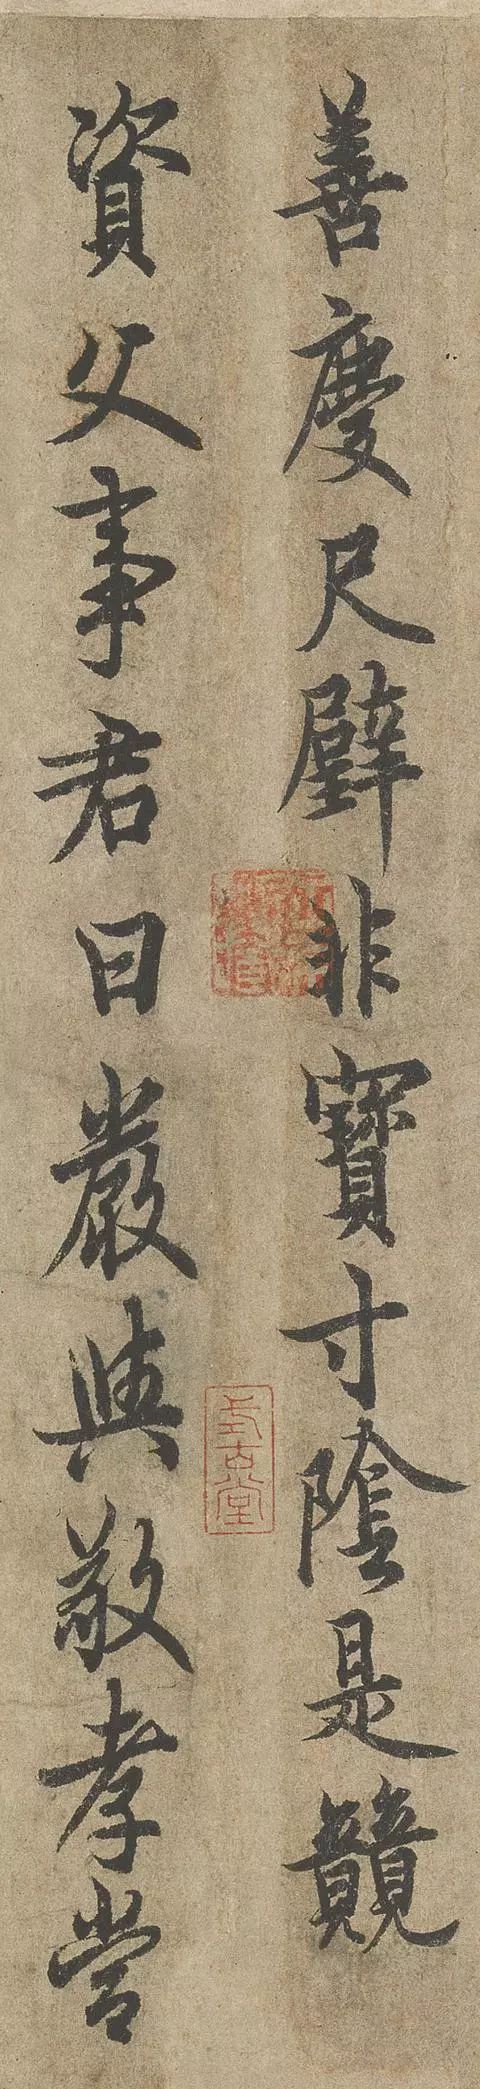 善慶尺璧非寶寸陰是競
資父事君曰嚴與敬孝當
式古堂